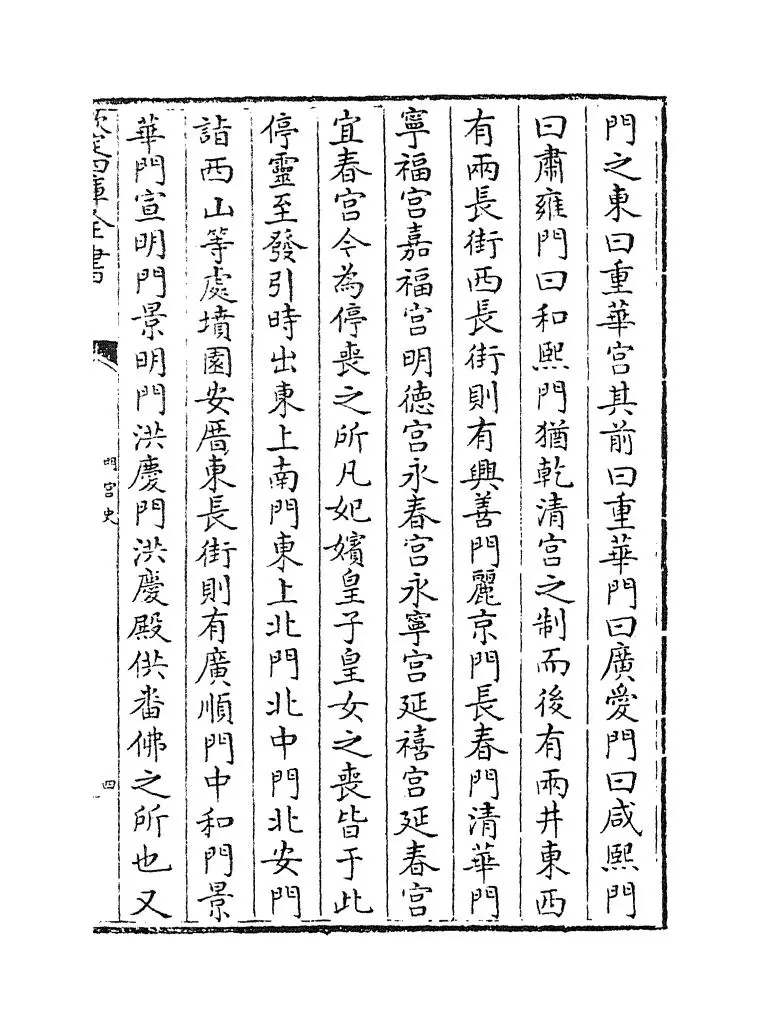 門之東曰重華宮其前曰重華門曰廣愛門曰咸熙門
曰肅雍門曰和熙門猶乾清宮之制而後有兩井東西
有兩長街西長街則有興善門麗京門長春門清華門
寧福宮嘉福宮明德宮永春宮永寧宮延禧宮延春宮
宜春宮今為停喪之所凡妃嬪皇子皇女之喪皆于此
停靈至發引時出東上南門東上北門北中門北安門
詣西山等處墳園安厝東長街則有廣順門中和門景
華門宣明門景明門洪慶門洪慶殿供畨佛之所也又
欽定四庫全書
明宮史
四